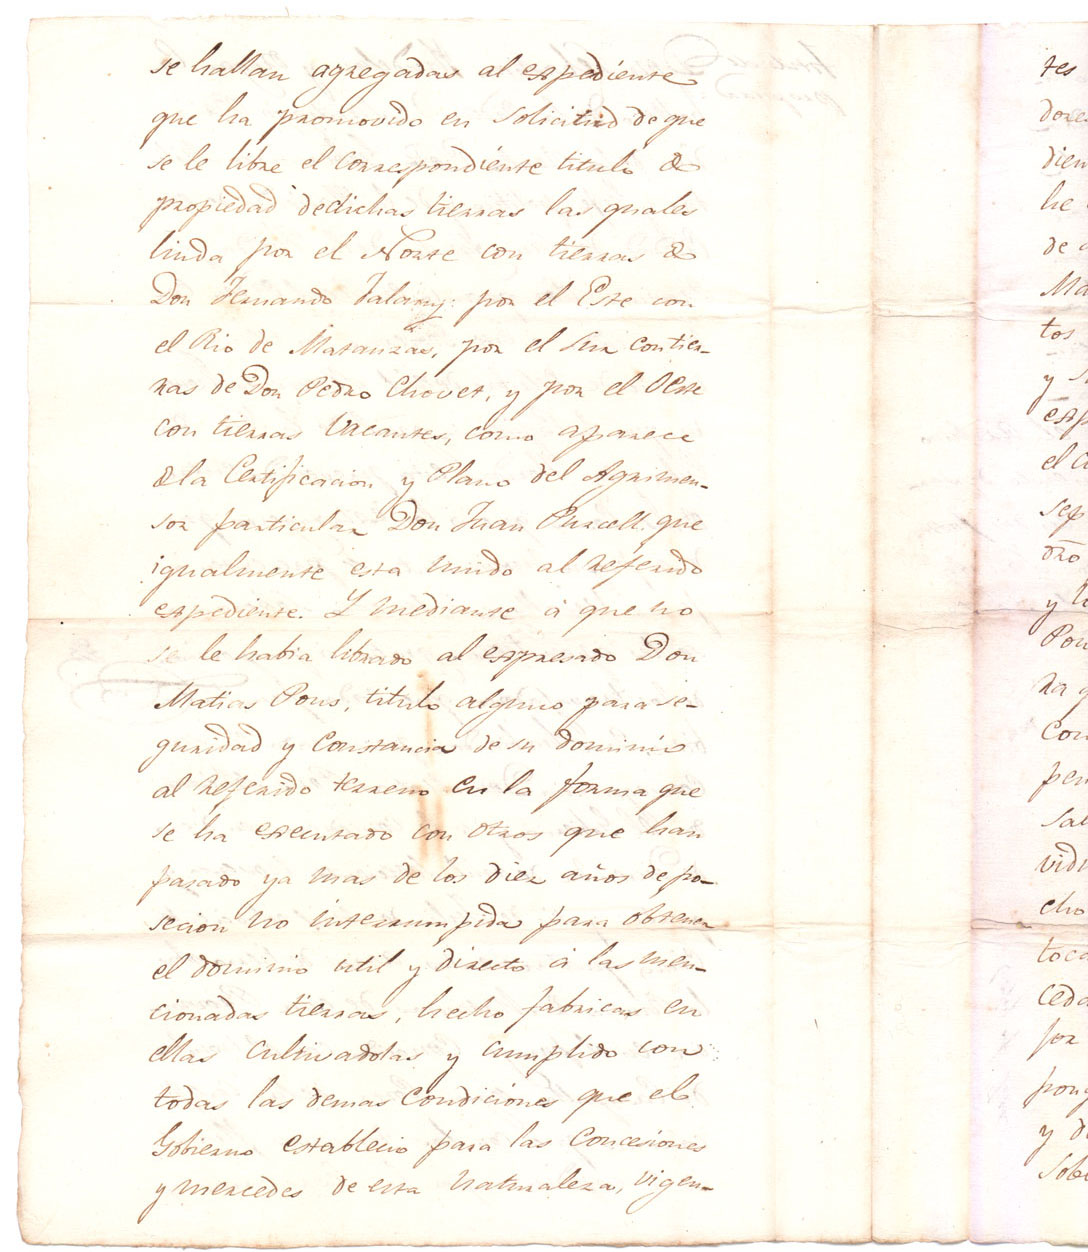 se hallan agregadas al expediente
que ha promovido en solicitud de que
se le libre el correspondiente titulo de
propiedad dedichas tierras las quales
linda por el Norte con tierras de
Don Fernando Falany: por el Este con
el Rio de Matanzas, por el Sur contier-
ras de Don Pedro Chovet, y por el Oeste
con tierras vacantes, como aparece
de la Certificacion y Plano del Agrimen-
sor particular Don Juan Purcell que
igualmente esta unido al referido
expediente. Y mediante á que no
se le habia librado al expresado Don
Matias Pons, titulo alguno para se-
guridad y constancia de su dominio
al referido terreno en la forma que
se ha executado con otros que han
pasado ya mas de los diez años de po-
secion no interrumpida para obtener
el dominio util y directo á las men-
cionadas tierras, hecho fabricas en
ellas cultivadolas y cumplido con
todas las demas condiciones que el
Gobierno establecio para las Concesiones
y mercedes de esta naturaleza, vigen-
tes
dores
dien
he
de
Ma
tos
y
exp
el
sep
dro
y
Pon
ra
Con
per
sal
vidu
cho
toca
ceda
por
pong
y d
Sobe